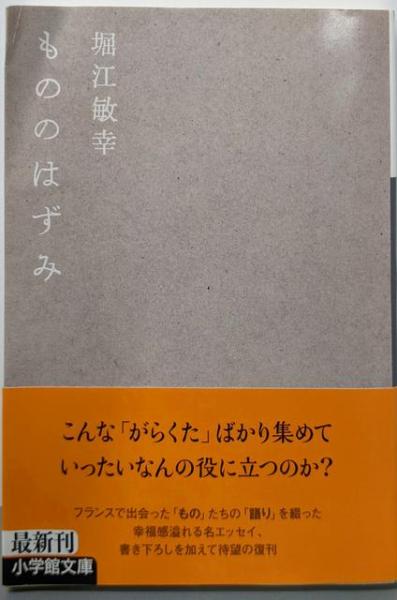 堀江敏幸
もののはずみ
こんな「がらくた」ばかり集めて
いったいなんの役に立つのか?
フランスで出会った「もの」たちの「語り」を綴った
幸福感溢れる名エッセイ、
書き下ろしを加えて待望の復刊
最新刊
小学館文庫